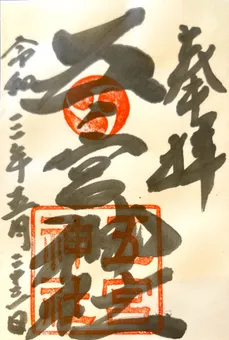 奉拝
五宮神社
令和二年五月二十三日
五宮
神社